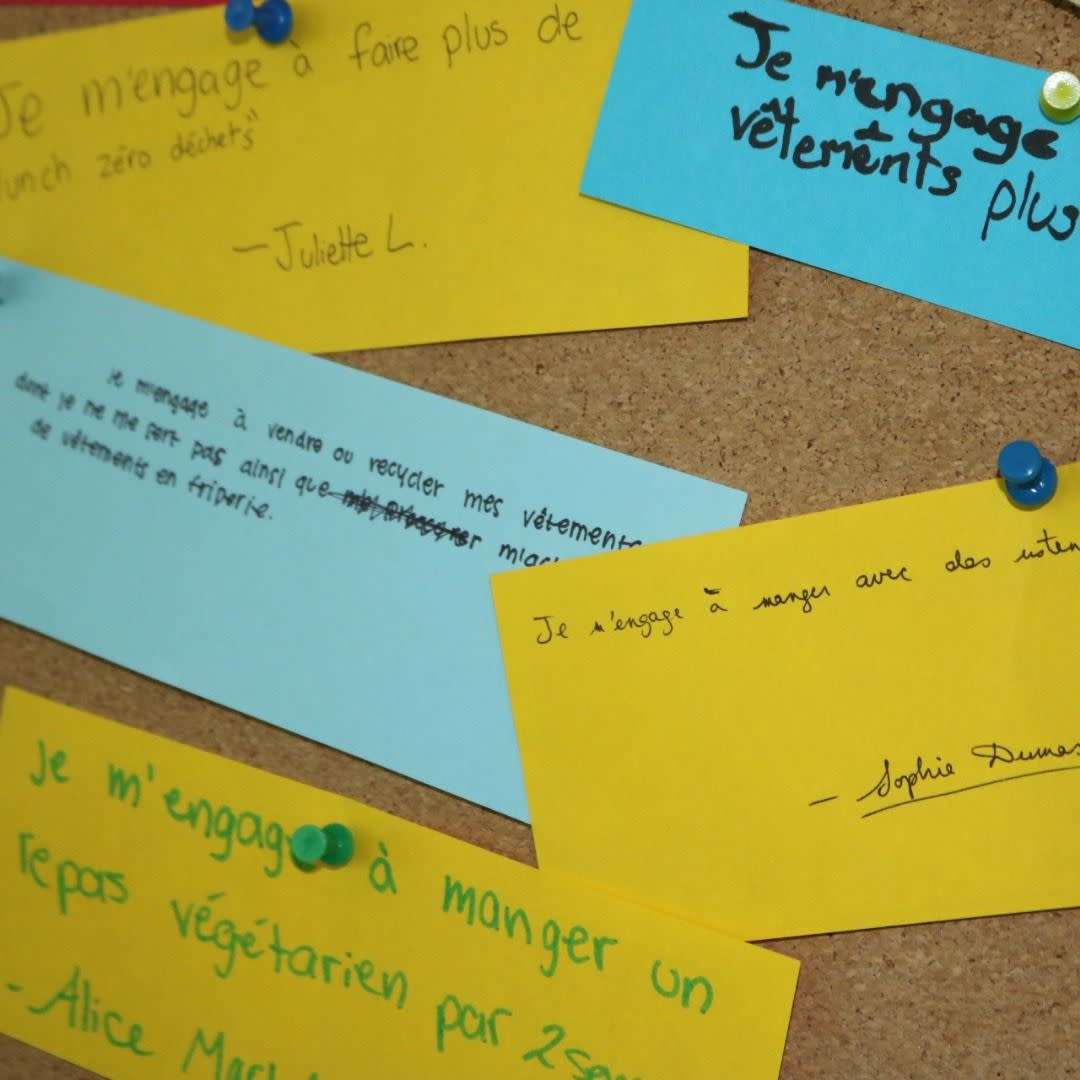 Je m'engage à faire plus de
"lunch zéro déchets"
— Juliette L.
Je m'engage
vêtements plus
je m'engage à vendre ou recycler mes vêtements
dont je ne me sert pas ainsi que
de vêtements en friperie.
Je m'engage à manger avec des
— Sophie Dumas
Je m'engage à manger un
repas végétarien par 2
- Alice